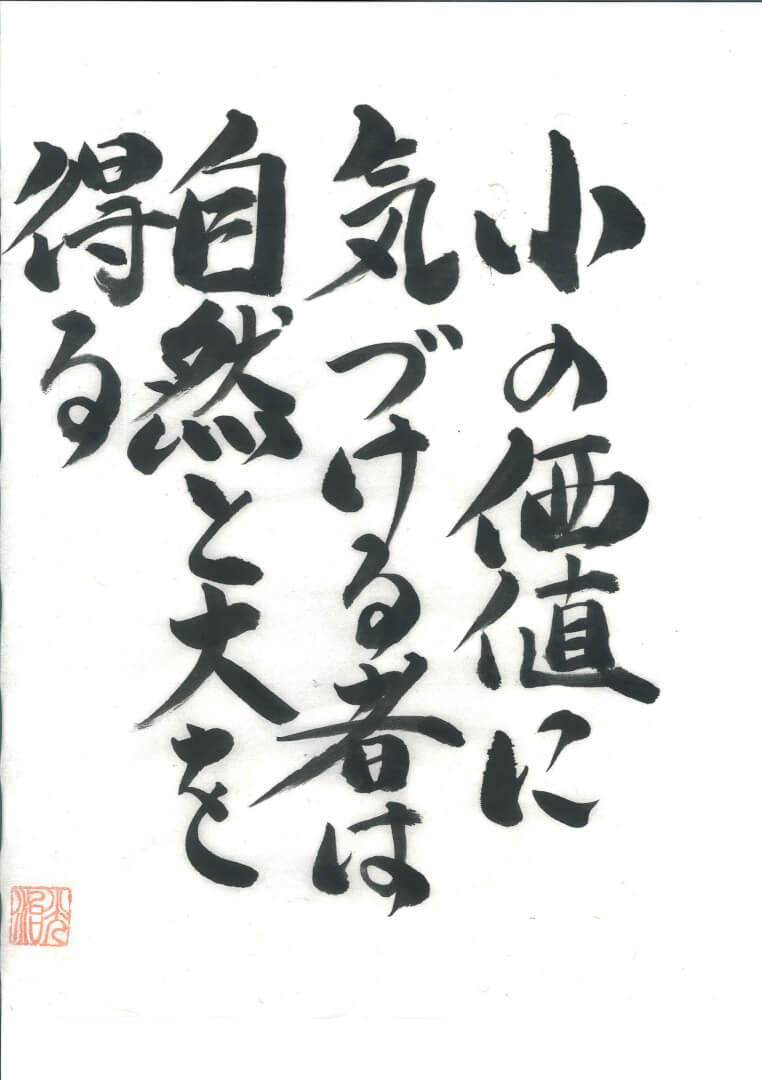 小の価値に
気づける者は
自然と大を
得る